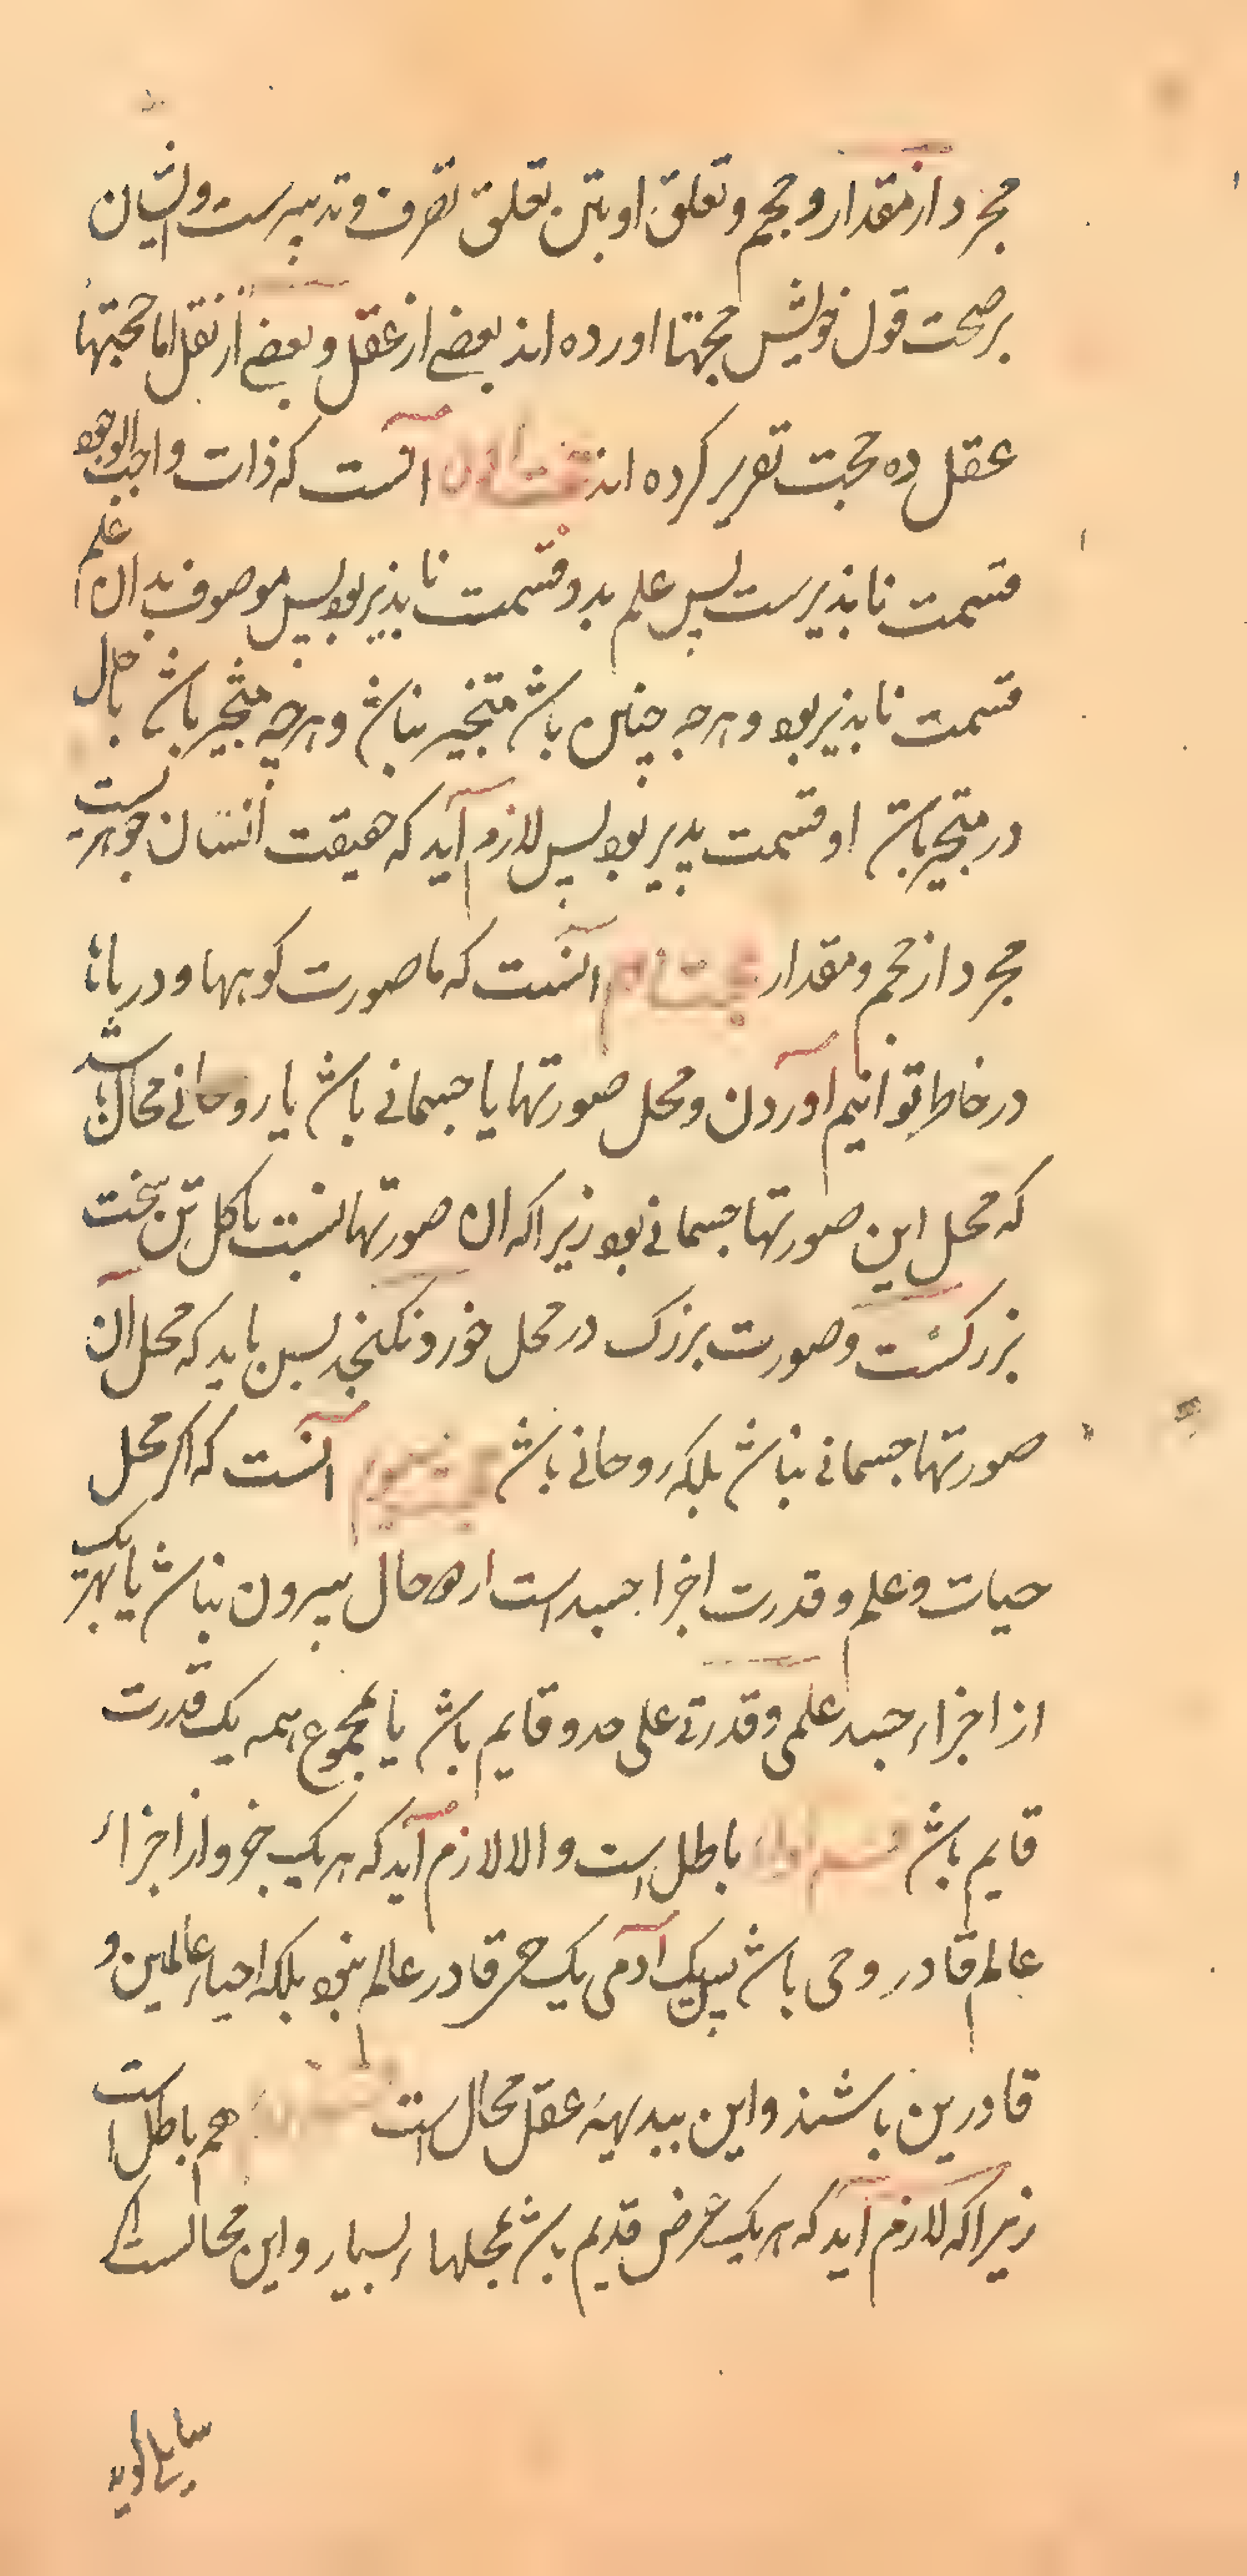 مجرد از مقدار و حجم و تعلق او بتن تعلق تصرف و تدبیرست و ایشان
بر صحت قول خویش حجتها اورده اند بعضے از عقل و بعضے از نقل اما حجتهاء
عقل ده حجت تقریر کرده اند حجت اول آنست که ذات واجب الوجود
قسمت ناپذیرست پس علم بدو قسمت ناپذیر بود پس موصوف بدان علم
قسمت ناپذیر بود و هرچه چنین باشد متحیز نباشد و هرچه متحیز باشد یا حال
در متحیز باشد او قسمت پذیر بود پس لازم آید که حقیقت انسان جوهریست
مجرد از حجم و مقدار حجت دوم آنست که ما صورت کوهها و دریاها
در خاطر توانیم اوردن و محل صورتها یا جسمانے باشد یا روحانے محال باشد
که محل این صورتها جسمانے بود زیرا که ان صورتها نسبت با کل تن سخت
بزرکست و صورت بزرک در محل خورد نکنجد پس باید که محل آن
صورتها جسمانے نباشد بلکه روحانے باشد حجت سیوم آنست که اکر محل
حیات و علم و قدرت اجزا جسدست از دو حال بیرون نباشد یا بهر یک
از اجزاء جسد علمی و قدرتے علی حده قایم باشد یا بمجموع همه یک قدرت
قایم باشد قسم اول باطل است و الا لازم آید که هر یک جزو از اجزاء
عالم قادر و حی باشد پس یک آدمی یک حی قادر عالم نبود بلکه احیاء عالمین و
قادرین باشند و این ببدیهۀ عقل محال است هم باطل است
زیرا که لازم آید که هر یک عرض قدیم باشد بمحلهاء بسیار و این محالست اکر
سایلے کوید